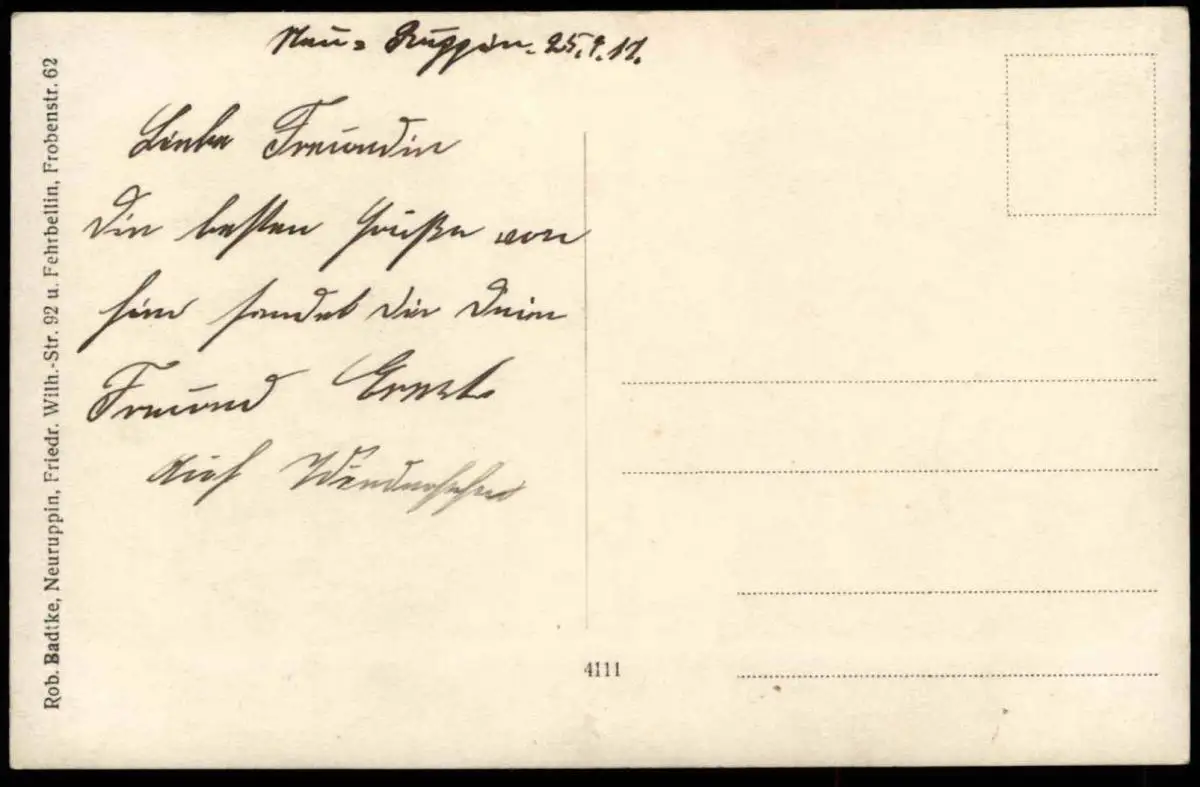 Neu-Ruppin. 25.9.17.
Liebe Freundin
Die besten Grüße von
hier sendet dir Dein
Freund Ernst.
Auf Wiedersehen
Rob. Badtke, Neuruppin, Friedr. Wilh.-Str. 92 u. Fehrbellin, Frobenstr. 62
4111